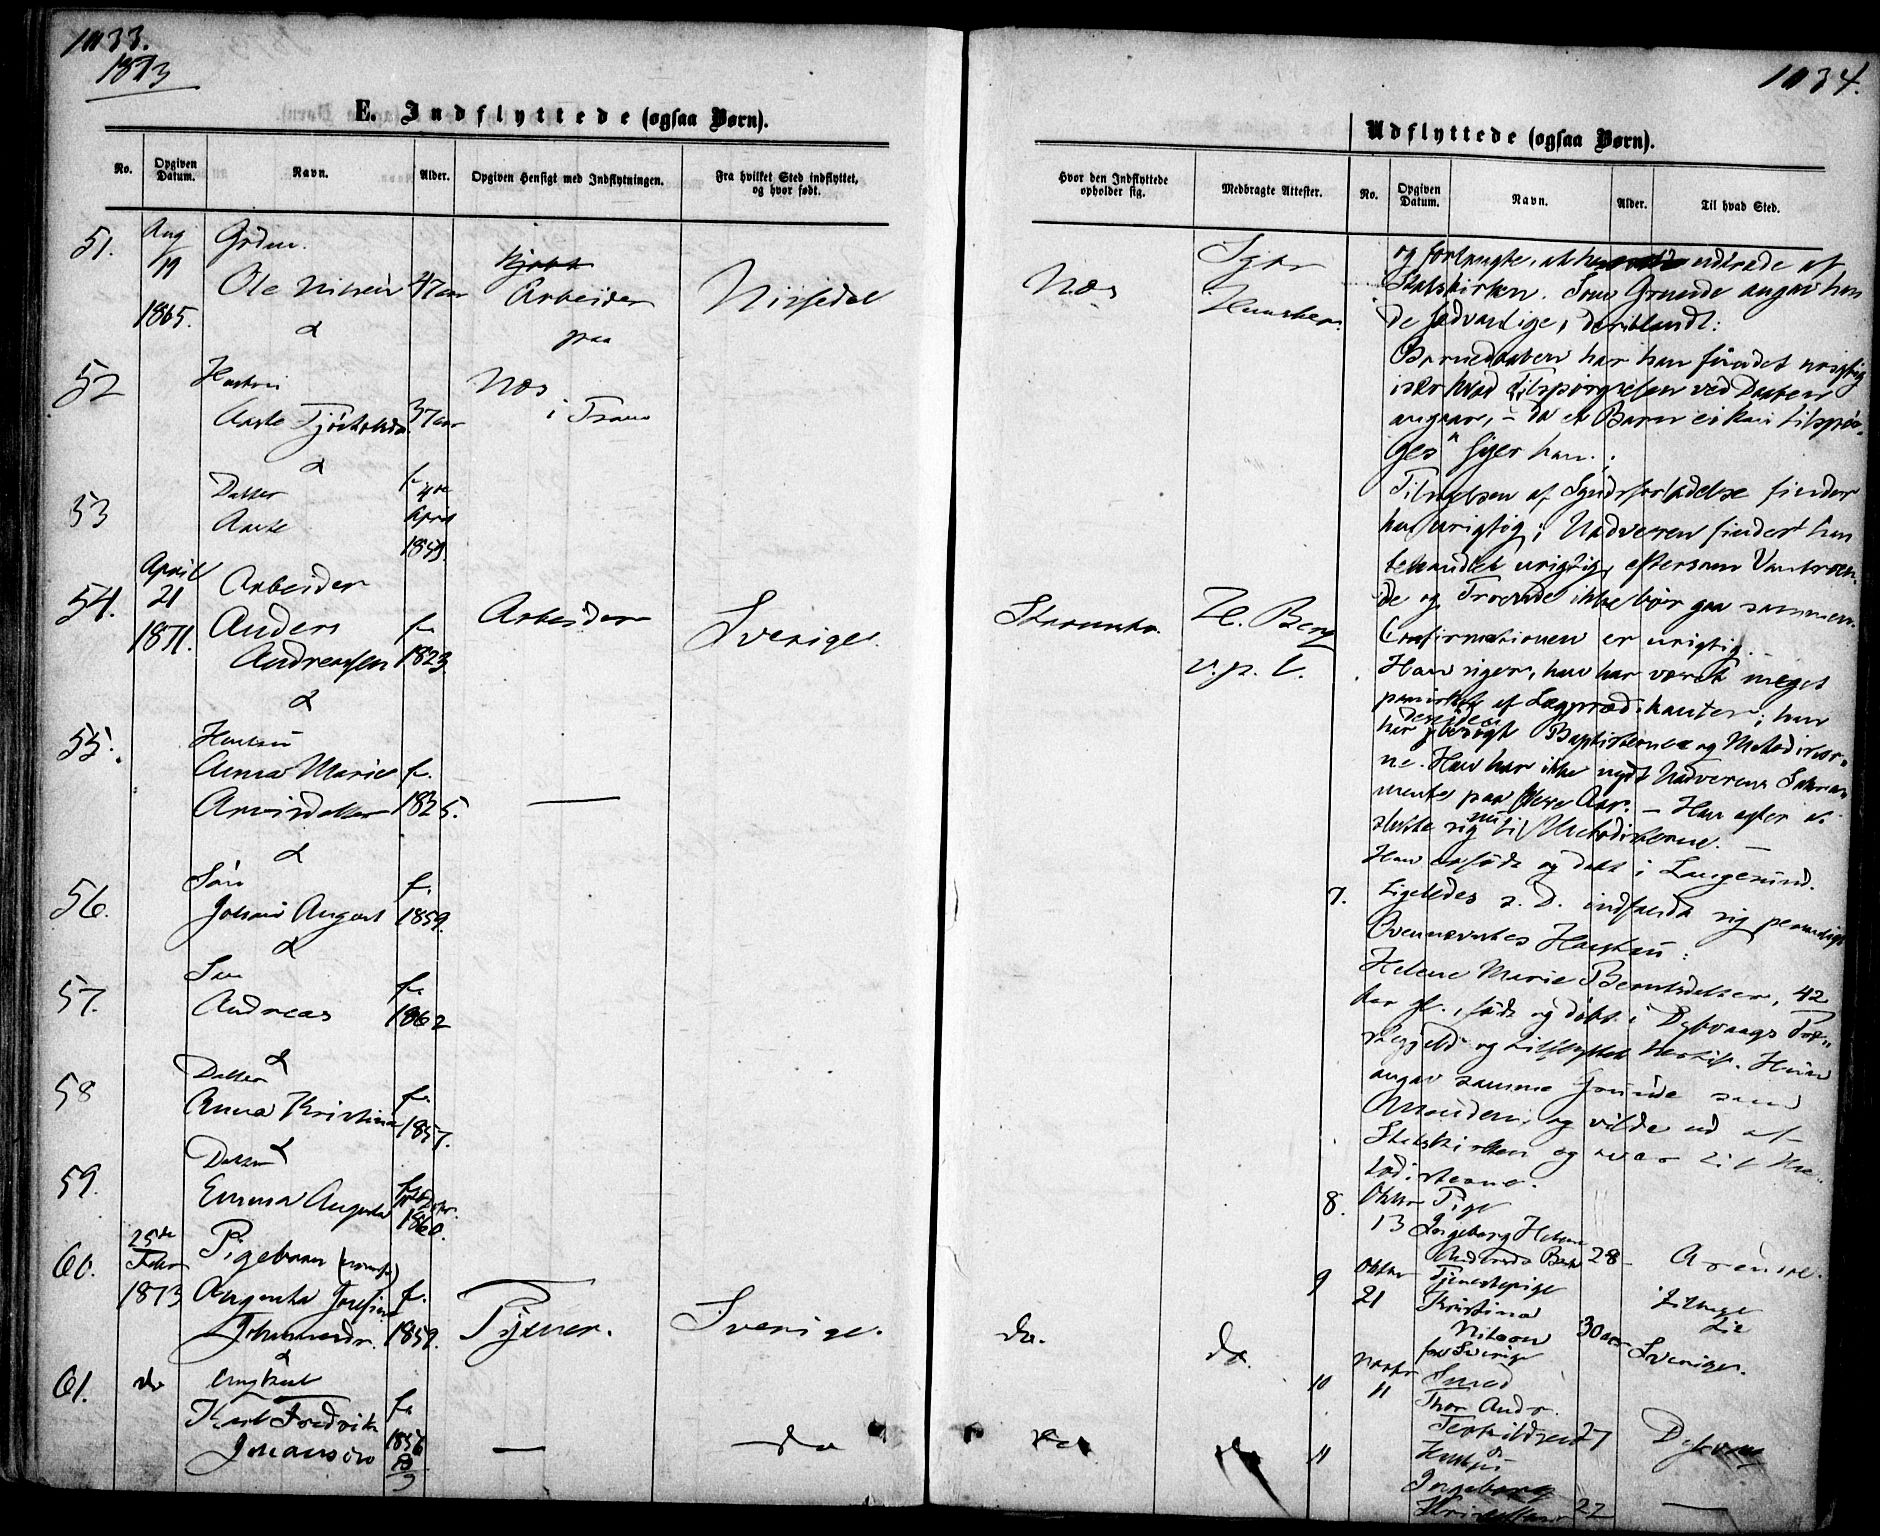 1033.
1873
E. Indflyttede (ogsaa Børn).
No.
Opgiven Datum.
Navn.
Alder.
Opgiven Hensigt med Indflytningen.
Fra hvilket Sted indflyttet, og hvor født.
51.
Aug
19
1865.
Ole Nilsen
47 aar
Arbeider
paa
Nissedal
&
52
Hustru
37 aar
Næs
i
&
53
Datter
Aaste
f.
4de
April
1859.
54.
April
21
1871.
Arbeider
Anders
Andreassen
f.
1823.
Arbeider
Sverige.
&
55.
Hustru
Anna Marie
f.
1825.
—
&
56.
Søn
Johan August
f.
1859.
&
57.
Søn
Andreas
f.
1862
&
58
Datter
Anna Kristina
f.
1857.
&
59.
Datter
Emma Augusta
1860.
60.
25de
Febr
1873
Pigebarn
Augusta Josefine
f.
1859.
Tjener.
Sverige.
&
61.
do
Ungkarl
Karl Fredrik
Johansson
f.
1856
—
do
1034.
Udflyttede (ogsaa Børn).
Hvor den Indflyttede opholder sig.
Medbragte Attester.
No.
Opgiven Datum.
Navn.
Alder.
Til hvad Sted.
Næs
H. Berg
v. p. C.
do.
do.
og forlangte, at udtræde af
Statskirken. Som Grunde angav han
de sædvanlige, deriblandt:
Barnedaaben har han fundet urigtig
især hvad Tilspørgselen ved Daaben
angaar, – da et Barn ei kan tilspør-
ges" siger han.
Tilsigelsen af Syndsforladelse finder
han urigtig; Nadveren finder han
behandlet urigtig, eftersom Vantroen-
de og Troende ikke bør gaa sammen.
Confirmationen er urigtig. –
Han siger, han har været meget
paavirket af Lægprædikanter; han
har desuden besøgt Baptisterne og Methodister-
ne. Han har ikke nydt Nadverens Sakra-
mente paa flere Aar. – Han agter at
slutte sig nu til Methodisterne. –
Han er født og døbt i Langesund.
7.
Ligeledes s. D. indfandt sig personligt
Ovennævntes Hustru:
Helene Marie Berntsdatter, 42
Aar gl., født og døbt i Dybvaags Præ-
stegjeld og tilflyttet hertil. Hun
angav samme Grunde som
Manden, og vilde ud af
Statskirken og over til Me-
todisterne.
8.
Oktbr
13
Pige
Ingeborg Helene
28
Arendal.
9
Oktbr
21
Tjenestepige
Kristina
Nilsson
fra Sverige
30 aar
Tilbage
til
Sverige.
10
Novbr
11
Smed
Thor Andr.
Terkildsen
27
Dybvaag
11
Hustru
Ingeborg
22
—